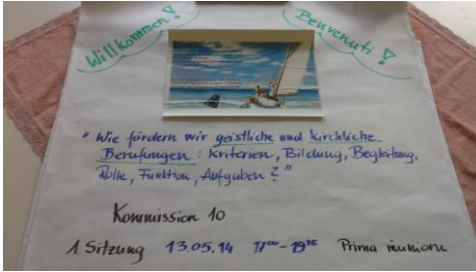 Willkommen! Benvenuti!
"Wie fördern wir geistliche und kirchliche
Berufungen: Kriterien, Bildung, Begleitung,
Rolle, Funktion, Aufgaben?"
Kommission 10
1. Sitzung 13.05.14 17⁰⁰-19¹⁵ Prima riunione